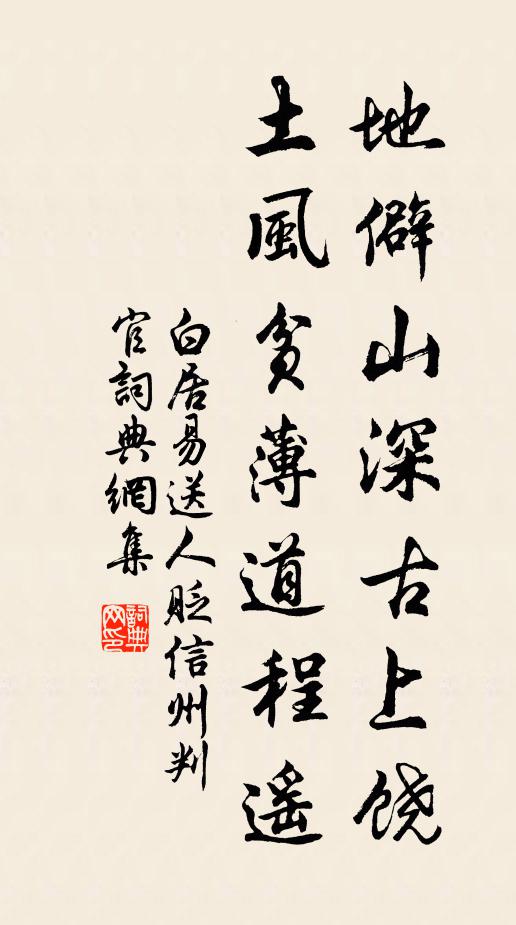 地僻山深古上饶
土風貧薄道程遥
白居易送人貶信州判
官詞典網集
詞典網印